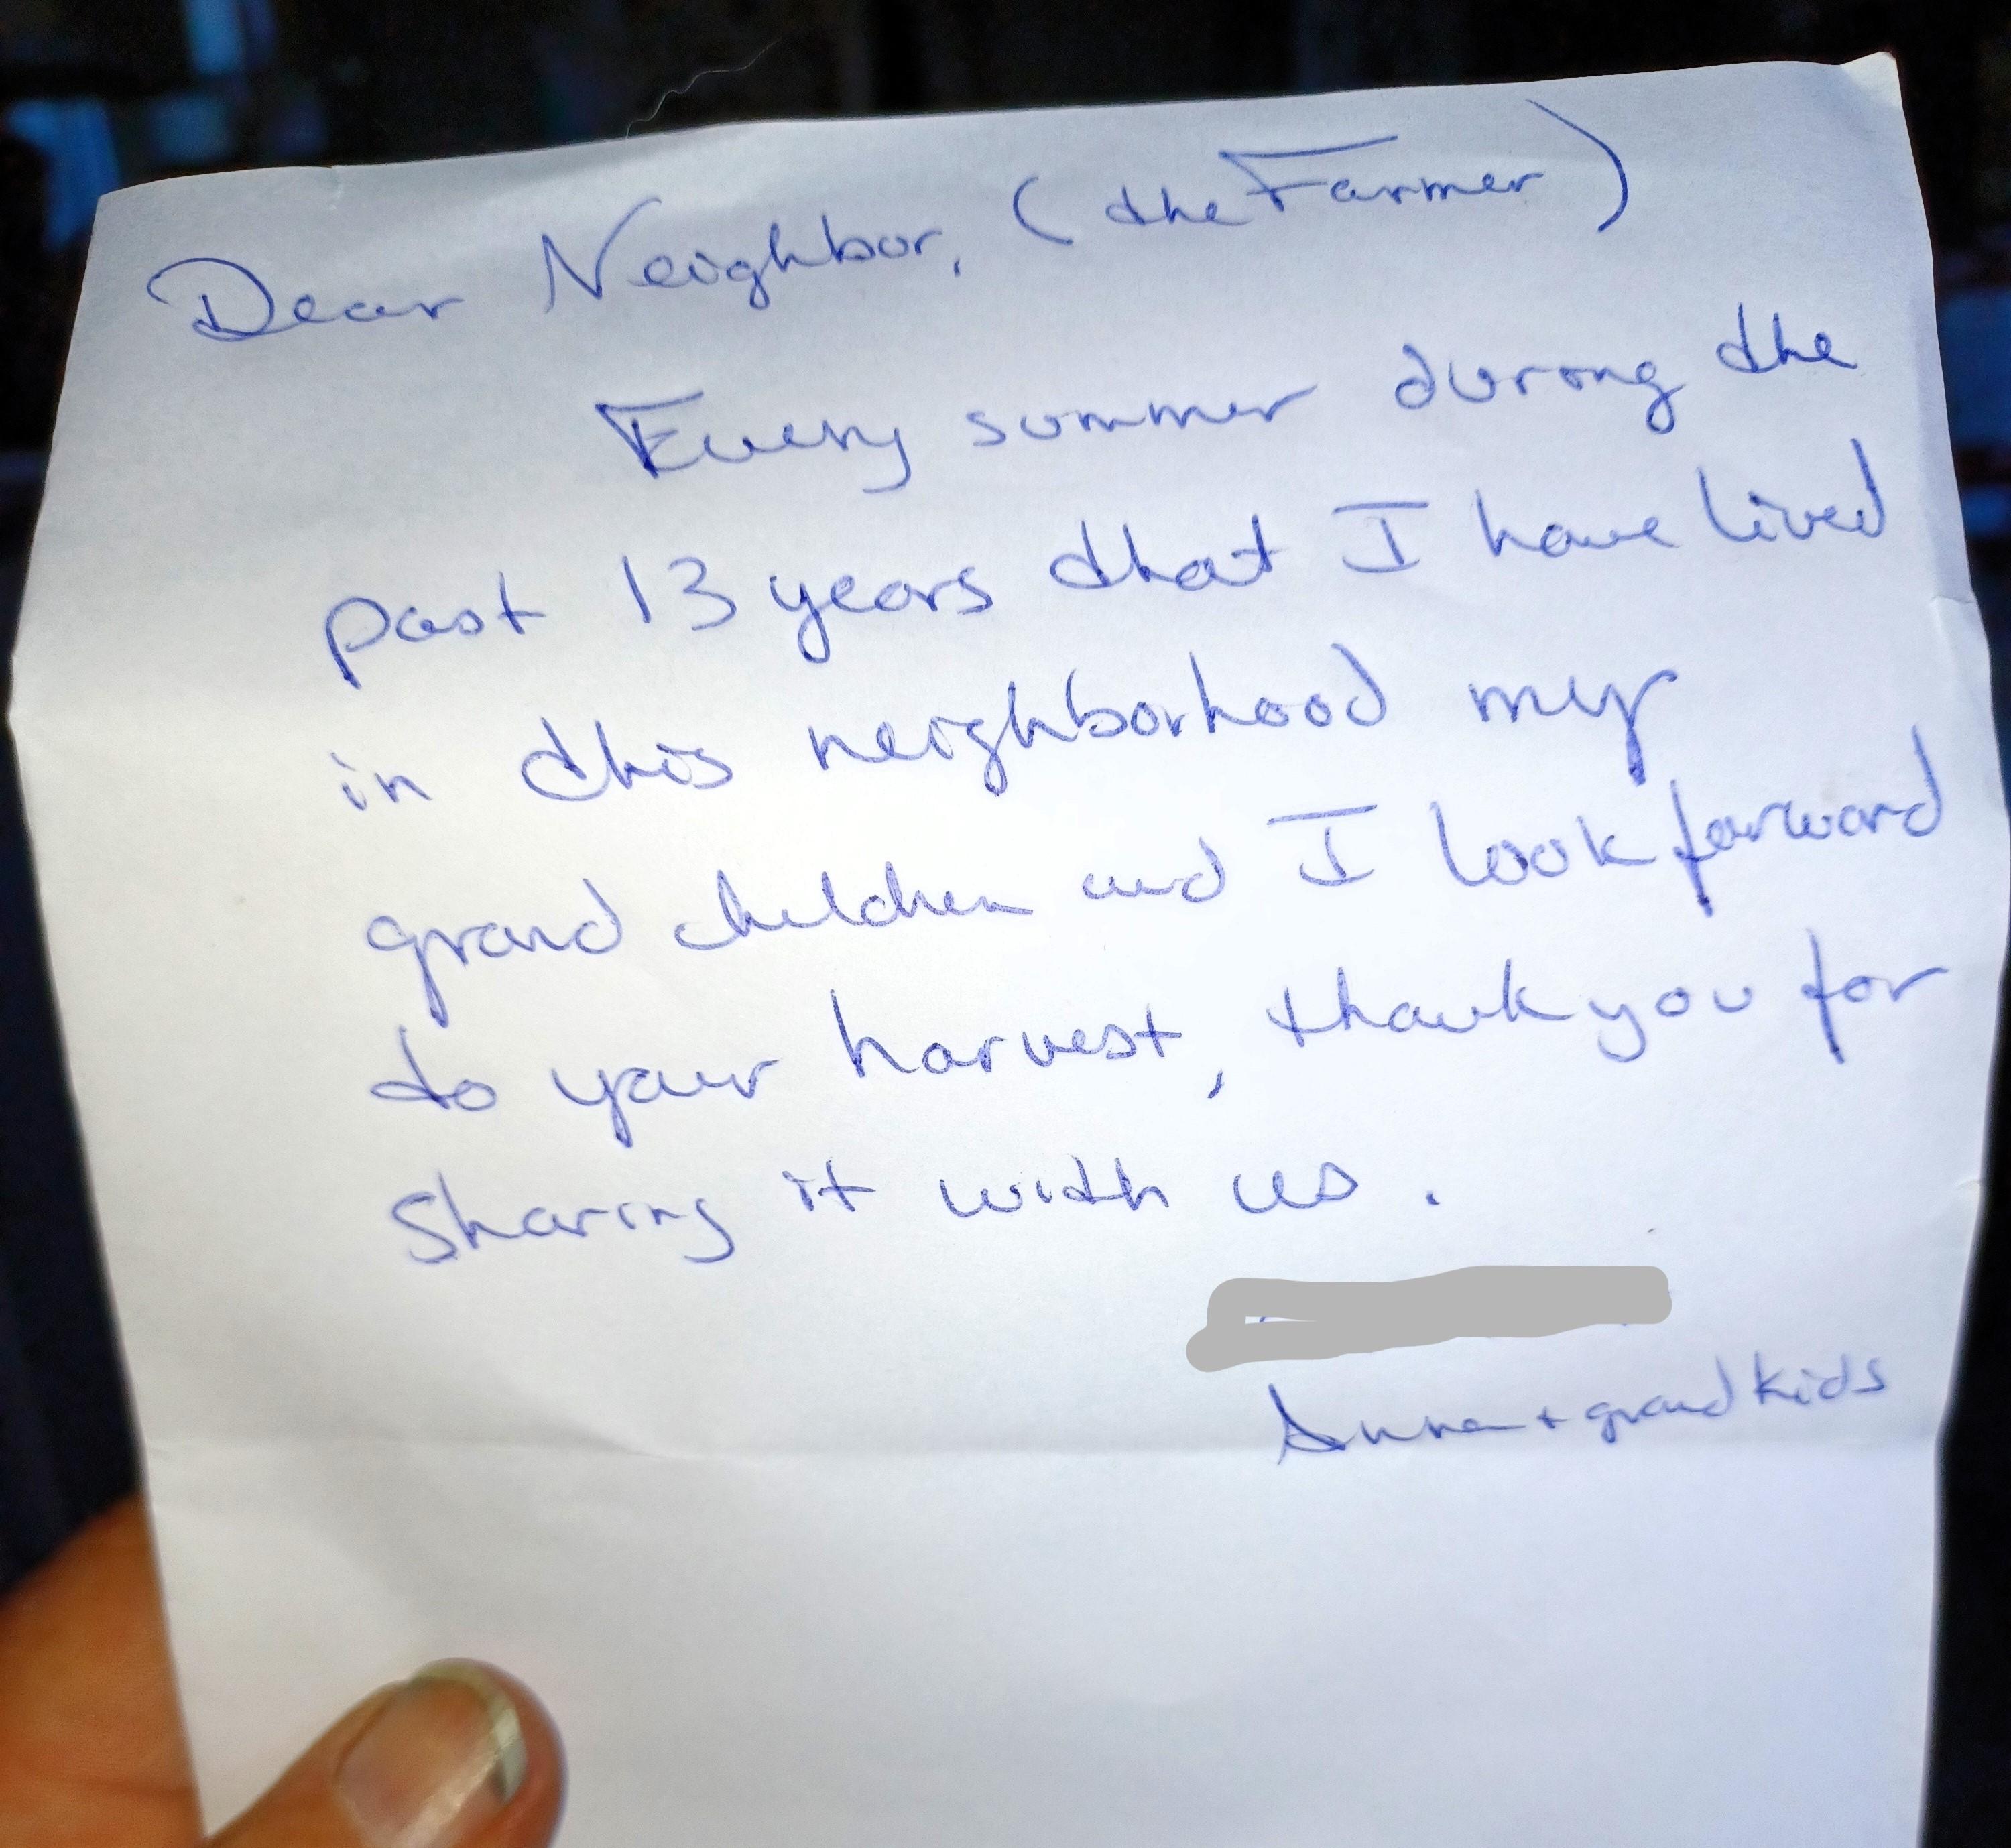 Dear Neighbor, (the Farmer)
Every summer during the
past 13 years that I have lived
in this neighborhood my
grand children and I look forward
to your harvest, thank you for
Sharing it with us.
+ grandkids